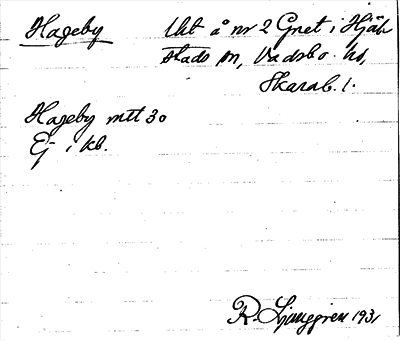 Hageby
Utt å nr 2 Gnet i Hjäl-
stads sn, Vadsbo hd,
Skarab. l.
Hageby mtt 30
Ej i kb.
R. Ljunggren 1931